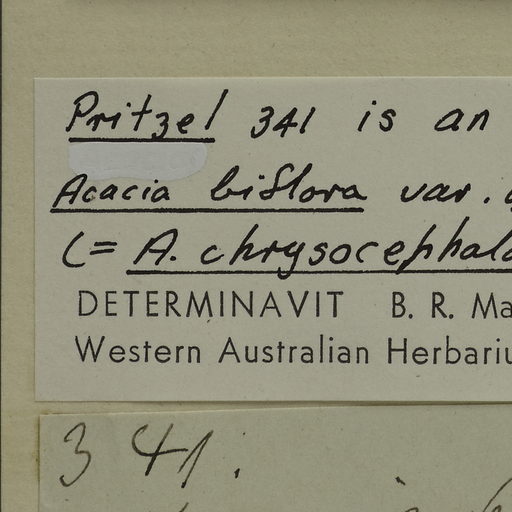 Pritzel 341 is an
Acacia biflora var.
(= A. chrysocephala
DETERMINAVIT B. R. Ma
Western Australian Herbariu
341.